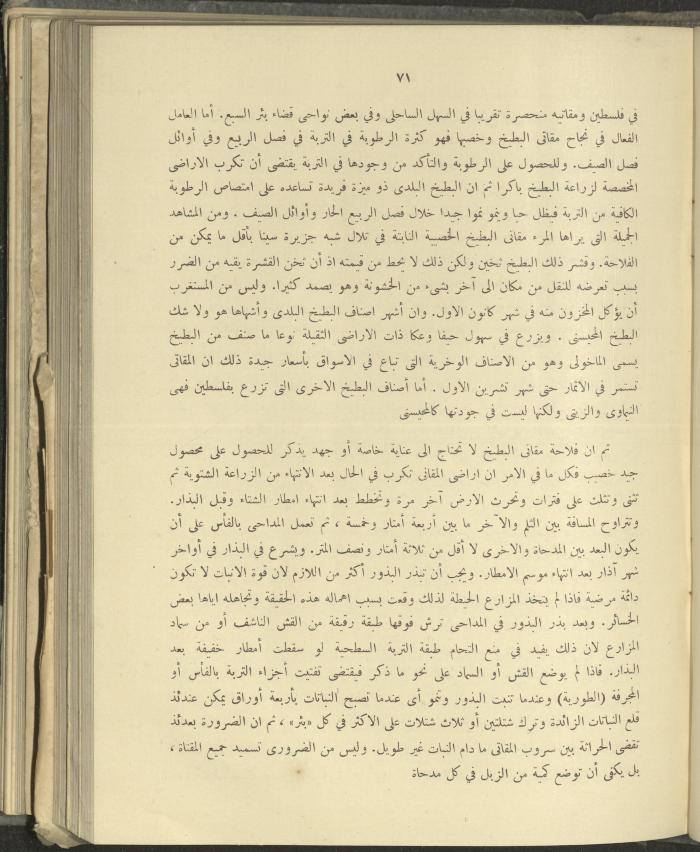 ٧١
في فلسطين ومقاتيه منحصرة تقريبا في السهل الساحلي وفي بعض نواحي قضاء بئر السبع. أما العامل
الفعال في نجاح مقاتي البطيخ وخصبها فهو كثرة الرطوبة في التربة في فصل الربيع وفي أوائل
فصل الصيف. وللحصول على الرطوبة والتأكد من وجودها في التربة يقتضي أن تكرب الاراضي
المخصصة لزراعة البطيخ باكرا ثم ان البطيخ البلدي ذو ميزة فريدة تساعده على امتصاص الرطوبة
الكافية من التربة فيظل حيا وينمو نموا جيدا خلال فصل الربيع الحار وأوائل الصيف . ومن المشاهد
الجميلة التي يراها المرء مقاتي البطيخ الخصبة النابتة في تلال شبه جزيرة سينا بأقل ما يمكن من
الفلاحة. وقشر ذلك البطيخ ثخين ولكن ذلك لا يحط من قيمته اذ أن ثخن القشرة يقيه من الضرر
بسبب تعرضه للنقل من مكان الى آخر بشيء من الخشونة وهو يصمد كثيرا. وليس من المستغرب
أن يؤكل المخزون منه في شهر كانون الاول. وان أشهر اصناف البطيخ البلدي وأشهاها هو ولا شك
البطيخ المحيسني . ويزرع في سهول حيفا وعكا ذات الاراضي الثقيلة نوعا ما صنف من البطيخ
يسمى الماخولي وهو من الاصناف الوخرية التي تباع في الاسواق بأسعار جيدة ذلك ان المقاتي
تستمر في الاثمار حتى شهر تشرين الاول . أما أصناف البطيخ الاخرى التي تزرع بفلسطين فهي
النيماوي والزيتي ولكنها ليست في جودتها كالمحيسني
ثم ان فلاحة مقاتي البطيخ لا تحتاج الى عناية خاصة أو جهد يذكر للحصول على محصول
جيد خصب فكل ما في الامر ان اراضي المقاتي تكرب في الحال بعد الانتهاء من الزراعة الشتوية ثم
تثنى وتثلث على فترات وتحرث الارض آخر مرة وتخطط بعد انتهاء امطار الشتاء وقبل البذار.
وتتراوح المسافة بين الثلم والآخر ما بين أربعة أمتار وخمسة ، ثم تعمل المداحي بالفأس على أن
يكون البعد بين المدحاة والاخرى لا أقل من ثلاثة أمتار ونصف المتر. ويشرع في البذار في أواخر
شهر آذار بعد انتهاء موسم الامطار. ويجب أن تبذر البذور أكثر من اللازم لان قوة الانبات لا تكون
دائمة مرضية فاذا لم يتخذ المزارع الحيطة لذلك وقعت بسبب اهماله هذه الحقيقة وتجاهله اياها بعض
الخسائر. وبعد بذر البذور في المداحي ترش فوقها طبقة رقيقة من القش الناشف أو من سماد
المزارع لان ذلك يفيد في منع التحام طبقة التربة السطحية لو سقطت أمطار خفيفة بعد
البذار. فاذا لم يوضع القش أو السماد على نحو ما ذكر فيقتضى تفتيت أجزاء التربة بالفأس أو
المجرفة (الطورية) وعندما تنبت البذور وتنمو أى عندما تصبح النباتات بأربعة أوراق يمكن عندئذ
قلع النباتات الزائدة وترك شتلتين أو ثلاث شتلات على الاكثر في كل «بئر» ، ثم ان الضرورة بعدئذ
تقضي الحراثة بين سروب المقاتي ما دام النبات غير طويل. وليس من الضروري تسميد جميع المقثاة ،
بل يكفي أن توضع كمية من الزبل في كل مدحاة